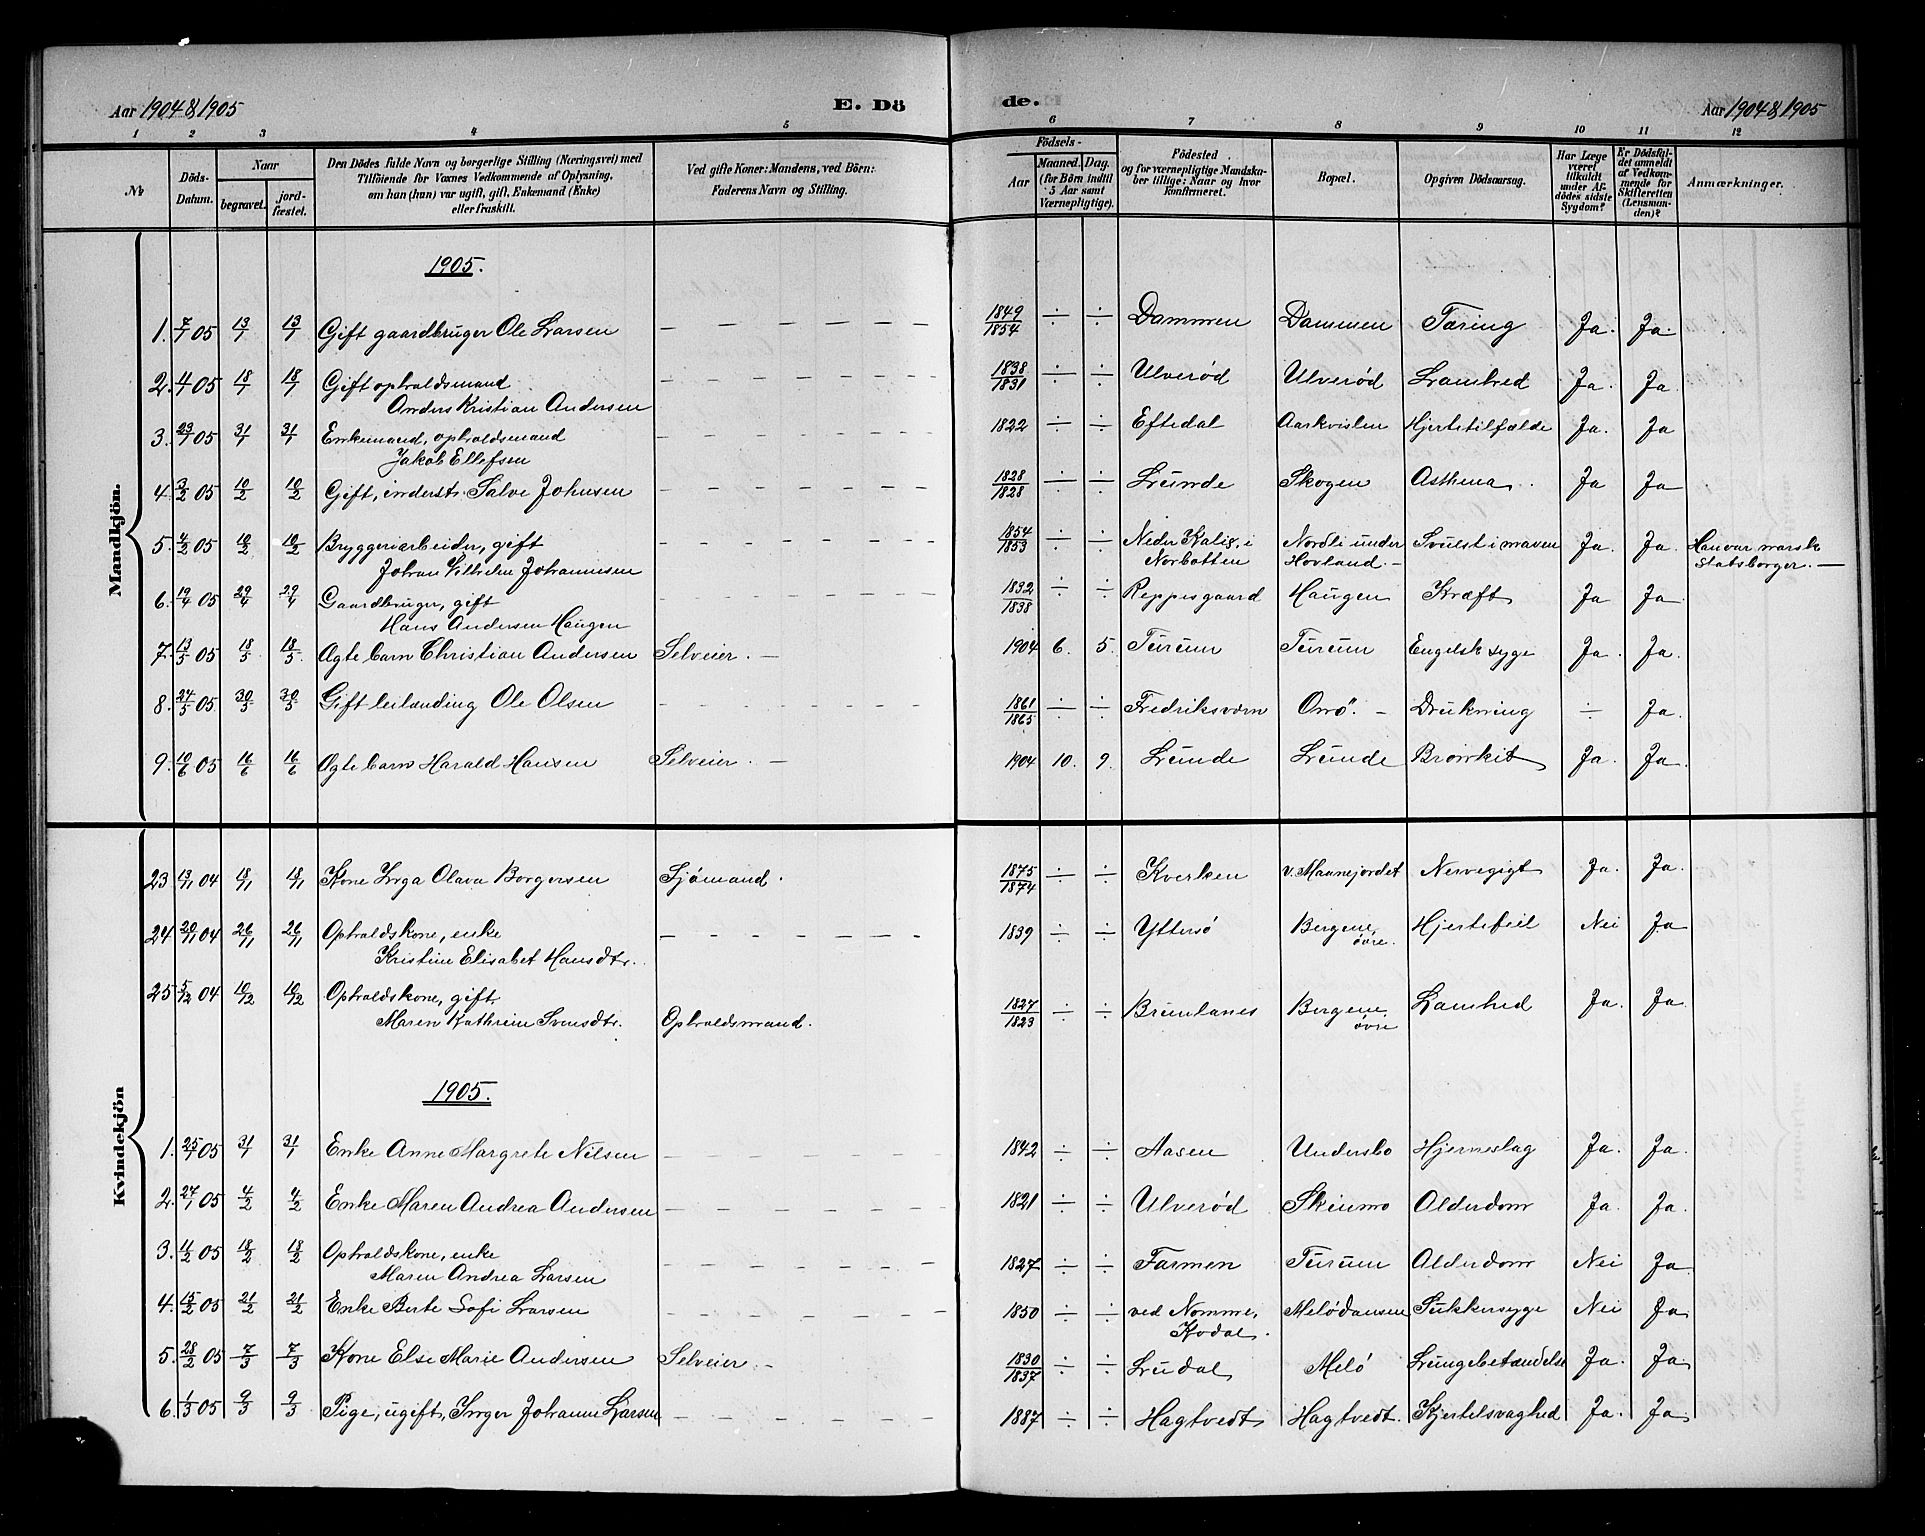 Aar 1904 & 1905
E. Dö
de.
Aar 1904 & 1905
1 2 3 4 5 6 7 8 9 10 11 12
№
Döds-Datum.
Naar
begravet.
jord-fæstet.
Den Dödes fulde Navn og borgerlige Stilling (Næringsvei) med
Tilföiende for Voxnes Vedkommende af Oplysning,
om han (hun) var ugift, gift, Enkemand (Enke)
eller fraskilt.
Ved gifte Koner: Mandens, ved Börn:
Faderens Navn og Stilling.
Födsels-
Aar
Maaned. Dag.
(for Börn indtil
5 Aar samt
Værnepligtige).
Födested
og for værnepligtige Mandska-
ber tillige: Naar og hvor
konfirmeret.
Bopæl.
Opgiven Dödsaarsag.
Har Læge
været
tilkaldt
under Af-
dödes sidste
Sygdom?
Er Dödsfal-
det anmeldt
af Vedkom-
mende for
Skifteretten
(Lensman-
den)?
Anmærkninger.
Mandkjön.
1905.
1. 7/1 05 13/1 13/1 Gift gaardbruger Ole Larsen — — — — — — 1849/1854 ÷ ÷ Dammen Dammen Tæring Ja. Ja.
2. 4/1 05 18/1 18/1 Gift opholdsmand — — — — — — 1838/1831 ÷ ÷ Ulverød Ulverød Lamhed Ja. Ja.
Anders Kristian Andersen
3. 23/1 05 31/1 31/1 Enkemand, opholdsmand — — — — — — 1822 ÷ ÷ Eftedal Aarkvislen Hjertetilfælde Ja. Ja
Jakob Ellefsen
4. 3/2 05 10/2 10/2 Gift, inderst. Salve Johnsen — — — — — — 1828/1828 ÷ ÷ Lunde Skogen Asthma. Ja Ja
5. 4/2 05 10/2 10/2 Bryggeriarbeider, gift — — — — — — 1854/1853 ÷ ÷ Neder Kalix, i Nordli under Svulst i maven Ja. Ja. Han var svensk
Johan Vilhelm Johannesen Norbotten Hovland. — statsborger. —
6. 19/4 05 29/4 29/4 Gaardbruger, gift — — — — — — 1832/1838 ÷ ÷ Reppesgaard Haugen Kræft Ja Ja
Hans Andersen Haugen
7. 13/5 05 18/5 18/5 Ægte barn Christian Andersen Selveier. — 1904 6. 5. Furum Furum Engelsk syge Ja. Ja.
8. 24/5 05 30/5 30/5 Gift leilænding Ole Olsen — — — — — — 1861/1865 ÷ ÷ Fredriksværn Omö. — Drukning ÷ Ja.
9. 10/6 05 16/6 16/6 Ægte barn Harald Hansen Selveier. — 1904 10. 9. Lunde Lunde Bronkit Ja. Ja.
Kvindekjön
23 13/11 04 18/11 18/11 Kone Inga Olava Borgersen Sjömand. 1875/1874 ÷ ÷ Kverken v. Mannejordet Nervegigt Ja. Ja.
24 20/11 04 26/11 26/11 Opholdskone, enke — — — — — — 1839 ÷ ÷ Yttersö Bergene, Hjertefeil Nei Ja
Kristine Elisabet Hansdtr. övre.
25 5/12 04 10/12 10/12 Opholdskone, gift 1827/1823 ÷ ÷ Brunlanes Bergene, Lamhed Ja. Ja.
Maren Kathrine Svensdtr. Opholdsmand. övre
1905.
1. 25/1 05 31/1 31/1 Enke Anne Margrete Nilsen — — — — — — 1842 ÷ ÷ Aasen Undersbo Hjerneslag Ja. Ja.
2. 27/1 05 4/2 4/2 Enke Maren Andrea Andersen — — — — — — 1821 ÷ ÷ Ulverød Skeumo Alderdom Ja. Ja.
3. 11/2 05 18/2 18/2 Opholdskone, enke — — — — — — 1827 ÷ ÷ Farmen Furum Alderdom Nei Ja
Maren Andrea Larsen
4. 15/2 05 21/2 21/2 Enke Berte Sofi Larsen — — — — — — 1850 ÷ ÷ ved Nomme, Melödansen Sukkersyge Nei Ja
Kodal.
5. 28/2 05 7/3 7/3 Kone Else Marie Andersen Selveier. — 1830/1837 ÷ ÷ Ludal Melö Lungebetændelse Ja. Ja.
6. 1/3 05 9/3 9/3 Pige, ugift, Inger Johanne Larsen — — — — — — 1887 ÷ ÷ Hagtvedt Hagtvedt. Kjertelsvaghed Ja. Ja.